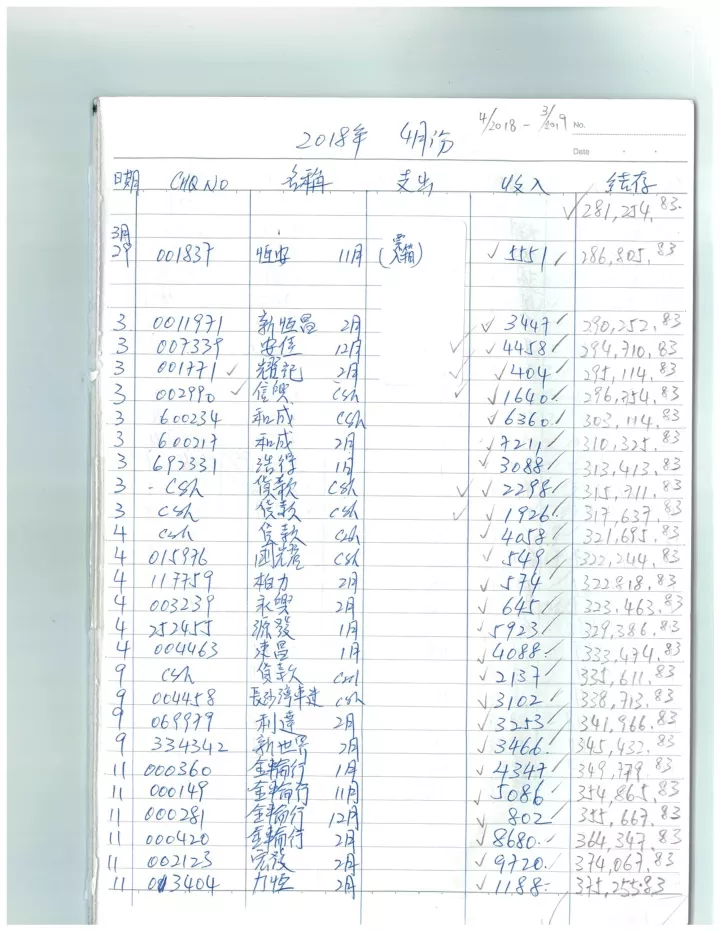 4/2018 - 3/2019 No.
2018年 4月份
Date
日期 CHQ NO 名稱 支出 收入 结存
281,254.83
3月
29 001837 恒安 11月 (票箱) 5551 286,805.83
3 0011971 新恒昌 2月 3447 290,252.83
3 007339 安佳 12月 4458 294,710.83
3 001771 耀記 2月 404 295,114.83
3 002990 信興 csh 1640 296,754.83
3 600234 和成 csh 6360 303,114.83
3 600217 和成 2月 7211 310,325.83
3 692331 浩得 1月 3088 313,413.83
3 csh 貨款 csh 2298 315,711.83
3 csh 貨款 csh 1926 317,637.83
4 csh 貨款 csh 4058 321,695.83
4 015976 csh 549 322,244.83
4 117759 柏力 2月 574 322818.83
4 003239 永興 2月 645 323,463.83
4 252455 源發 1月 5923 329,386.83
4 004463 東昌 1月 4088 333,474.83
9 csh 貨款 csh 2137 335,611.83
9 004458 長沙灣車建 csh 3102 338,713.83
9 069979 利達 2月 3253 341,966.83
9 334342 新世界 2月 3466 345,432.83
11 000360 金輪行 1月 4347 349,779.83
11 000149 金輪行 11月 5086 354,865.83
11 000281 金輪行 12月 802 355,667.83
11 000420 金輪行 2月 8680 364,347.83
11 002123 宏發 2月 9720 374,067.83
11 013404 力恒 2月 1188 375,255.83